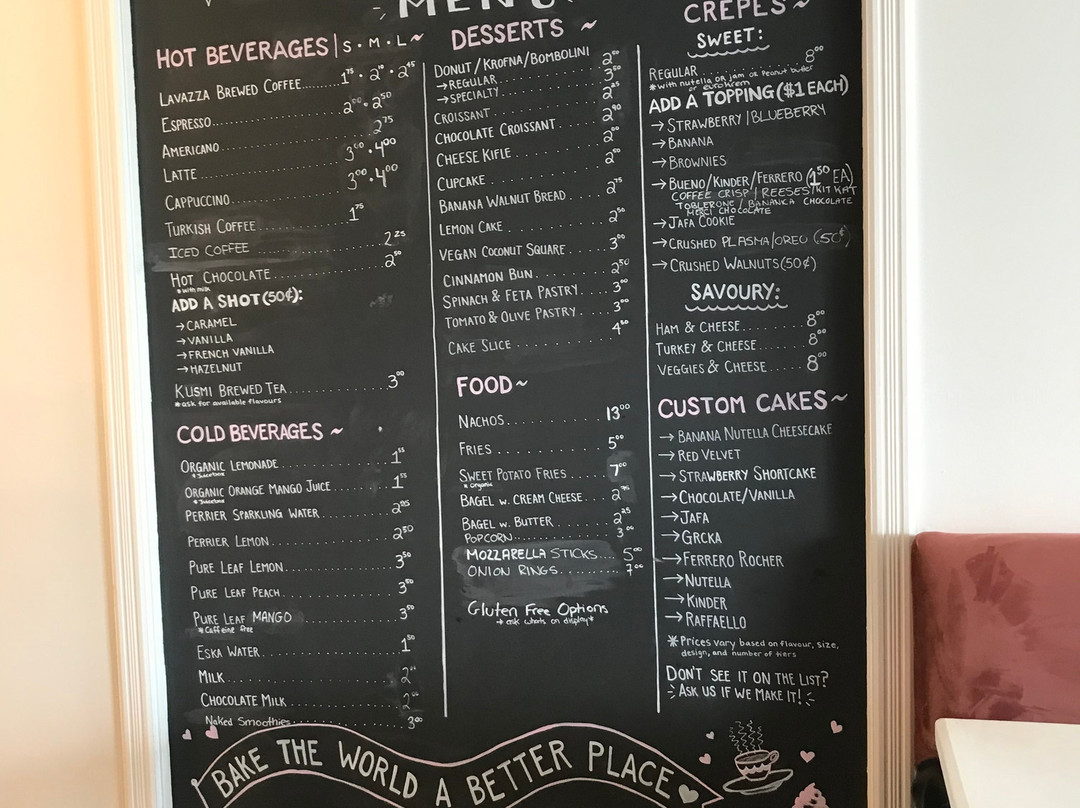 MENU
HOT BEVERAGES | S • M • L ~
LAVAZZA BREWED COFFEE......... 1.75 • 2.10 • 2.45
ESPRESSO......... 2.00 • 2.50
AMERICANO......... 2.75
LATTE......... 3.00 • 4.00
CAPPUCCINO......... 3.00 • 4.00
TURKISH COFFEE......... 1.75
ICED COFFEE......... 2.25
HOT CHOCOLATE......... 2.50
*with milk
ADD A SHOT (50¢):
→ CARAMEL
→ VANILLA
→ FRENCH VANILLA
→ HAZELNUT
KUSMI BREWED TEA......... 3.00
*ask for available flavours
COLD BEVERAGES ~
ORGANIC LEMONADE
ORGANIC ORANGE MANGO JUICE
PERRIER SPARKLING WATER
PERRIER LEMON......... 2.50
PURE LEAF LEMON......... 3.50
PURE LEAF PEACH......... 3.50
PURE LEAF MANGO......... 3.50
*Caffeine free
ESKA WATER......... 1.50
MILK
CHOCOLATE MILK
Naked Smoothies......... 3.00
DESSERTS ~
DONUT / KROFNA / BOMBOLINI
→ REGULAR......... 2.00
→ SPECIALTY......... 3.50
CROISSANT......... 2.25
CHOCOLATE CROISSANT......... 2.90
CHEESE KIFLE......... 2.00
CUPCAKE......... 2.00
BANANA WALNUT BREAD......... 2.75
LEMON CAKE......... 2.50
VEGAN COCONUT SQUARE......... 3.00
CINNAMON BUN......... 2.50
SPINACH & FETA PASTRY......... 3.00
TOMATO & OLIVE PASTRY......... 3.00
CAKE SLICE......... 4.50
FOOD ~
NACHOS......... 13.00
FRIES......... 5.00
SWEET POTATO FRIES......... 7.00
*Organic
BAGEL W. CREAM CHEESE......... 2.75
BAGEL W. BUTTER......... 2.25
POPCORN......... 3.00
MOZZARELLA STICKS.... 5.00
ONION RINGS......... 7.00
Gluten Free Options
→ ask whats on display*
CREPES ~
SWEET:
REGULAR......... 8.00
*with nutella or jam or Peanut butter
or eurokrem
ADD A TOPPING ($1 EACH)
→ STRAWBERRY | BLUEBERRY
→ BANANA
→ BROWNIES
→ BUENO/KINDER/FERRERO (1.50 EA)
COFFEE CRISP | REESES/KIT KAT
TOBLERONE / BANANKA CHOCOLATE
MERCI CHOCOLATE
→ JAFA COOKIE
→ CRUSHED PLASMA/OREO (50¢)
→ CRUSHED WALNUTS (50¢)
SAVOURY:
HAM & CHEESE......... 8.00
TURKEY & CHEESE......... 8.00
VEGGIES & CHEESE...... 8.00
CUSTOM CAKES ~
→ BANANA NUTELLA CHEESECAKE
→ RED VELVET
→ STRAWBERRY SHORTCAKE
→ CHOCOLATE/VANILLA
→ JAFA
→ GRCKA
→ FERRERO ROCHER
→ NUTELLA
→ KINDER
→ RAFFAELLO
* Prices vary based on flavour, size,
design, and number of tiers
DON'T SEE IT ON THE LIST?
ASK US IF WE MAKE IT!
BAKE THE WORLD A BETTER PLACE